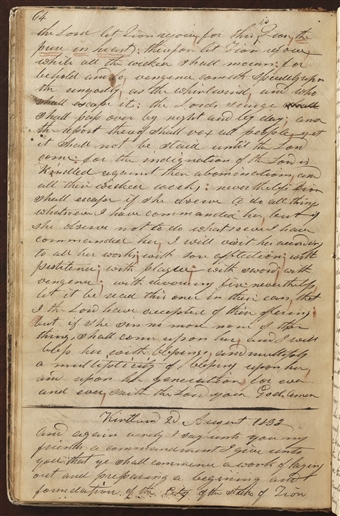 64
the Lord let Zion rejoice, for this is Zion, the
pure in heart; therefore let Zion rejoice
while all the wicked shall mourn: for
behold and lo, vengence cometh speedily upon
the ungodly as the whirlwind, and who
shall escape it: the Lords scorge
shall pass over by night and by day; and
the report thereof shall vex all people, yet
it shall not be staid until the Lord
come; for the indignation of the Lord is
Kindled against their abominations, and
all their wicked works; nevertheless Zion
shall escape if she observe to do all things
whatsoever I have commanded her, but if
she observe not to do whatsoever I have
commanded her, I will visit her according
to all her works; with sore affliction; with
pestilence; with plague; with sword; with
vengence; with devouring fire; nevertheless,
let it be read this once in their ears, that
I the Lord have accepted of their offering;
but if she sin no more none of these
things shall come upon her, and I will
bless her with blessings, and multiply
a multiplicity of blessings upon her,
and upon her generations, for ever
and ever, saith the Lord your God, amen
Kirtland 2D August 1833
and again verily I say unto you my
friends a commandment I give unto
you that ye shall commence a work of laying
out and prepareing a begining and
foundation of the City of the Stake of Zion